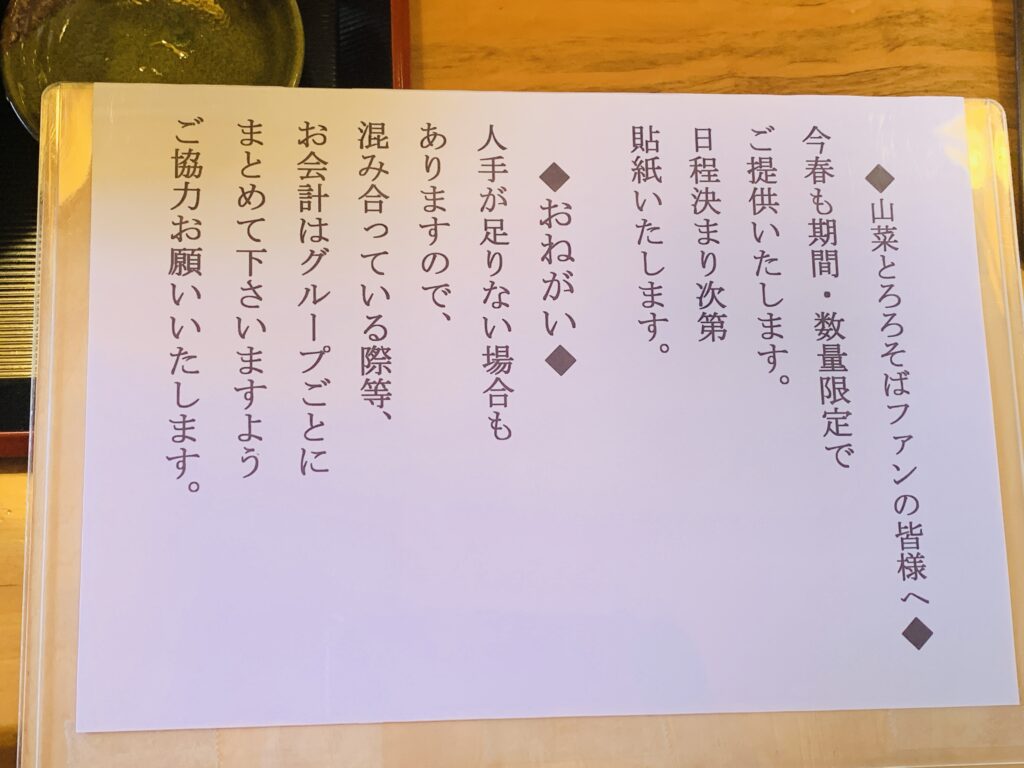 ◆山菜とろろそばファンの皆様へ◆
今春も期間・数量限定で
ご提供いたします。
日程決まり次第
貼紙いたします。
◆おねがい◆
人手が足りない場合も
ありますので、
混み合っている際等、
お会計はグループごとに
まとめて下さいますよう
ご協力お願いいたします。